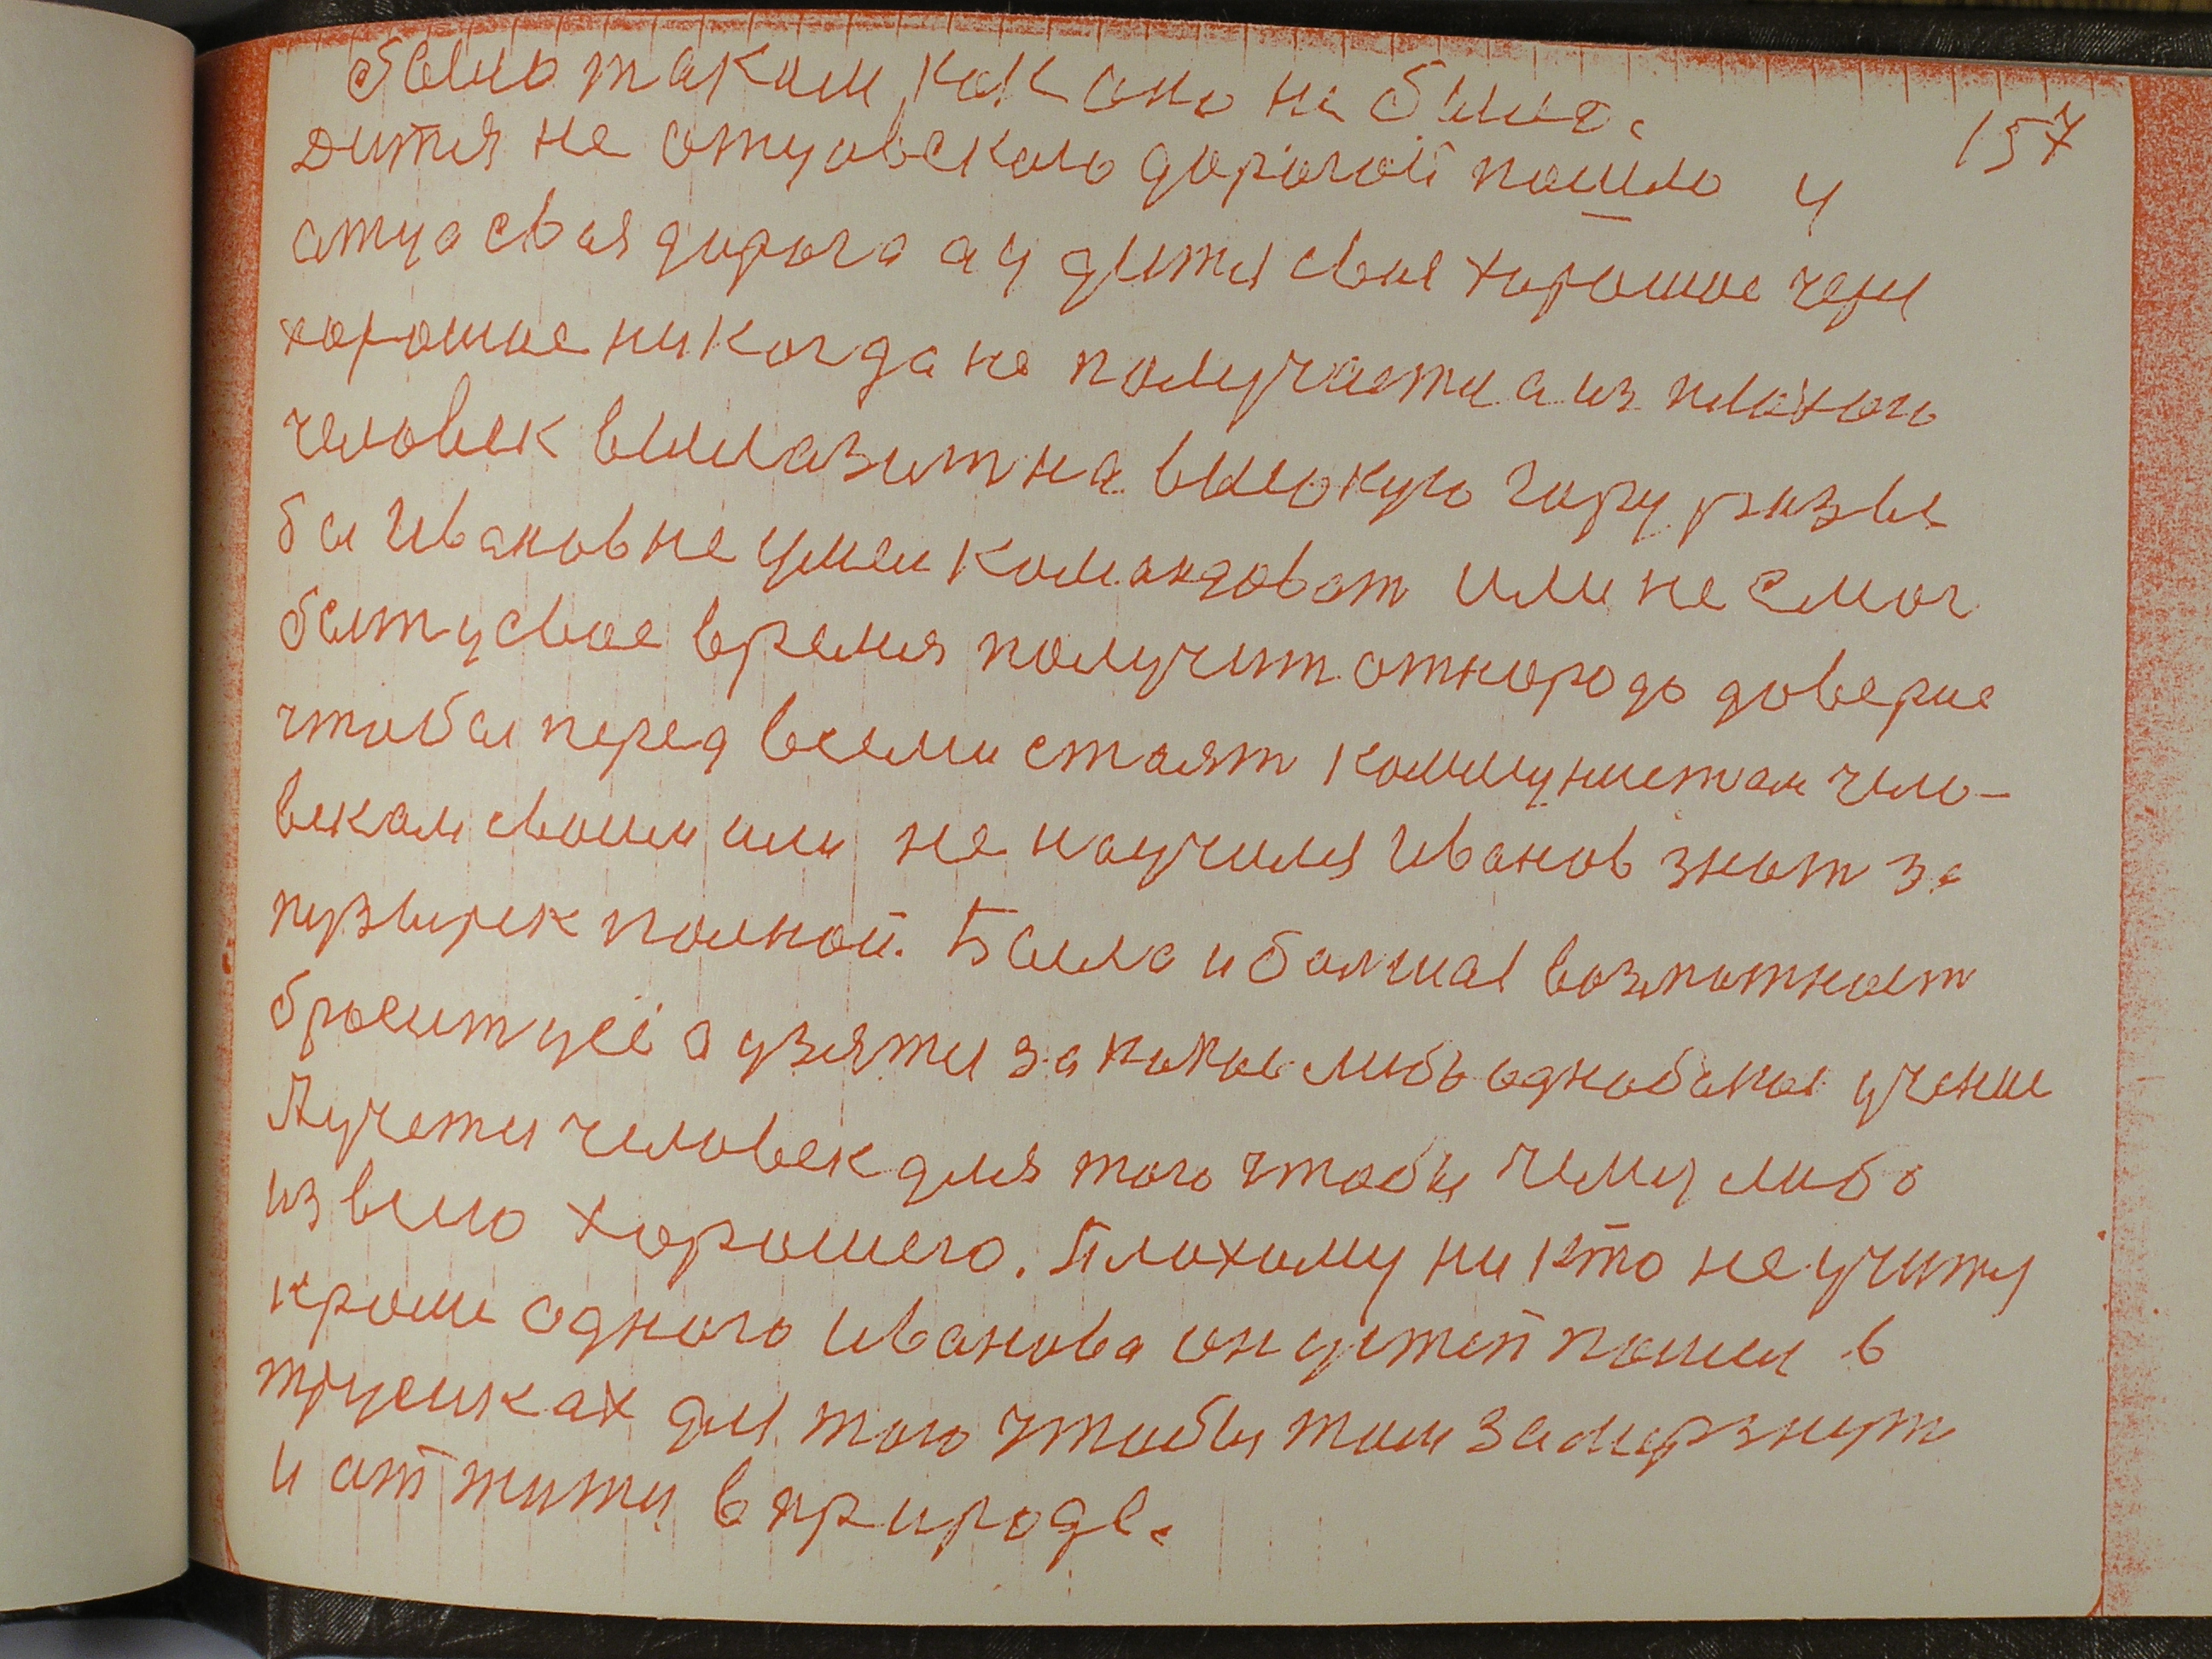 было таким как оно не было.
157
дитя не отцовскою дорогой пошло у
отца своя дорога а у дитя своя хорошое чери
хорошое никогда не получается а из плохого
человек вылазит на высокую гору разве
бы Иванов не умел командоват или не смог
быт у свое время получит от народа доверие
чтобы перед всеми стоят коммунистом чело-
веком своим или не научился Иванов знат за
пузырек полной. Была и болшая возможност
бросит усё а узятся за какое либо однобокое учение
А учется человек для того чтобы чему либо
из всего хорошего. Плохому ни кто не учится
кроме одного Иванова он ужей пошел в
трусиках для того чтобы там замерзнут
и отжити в природе.